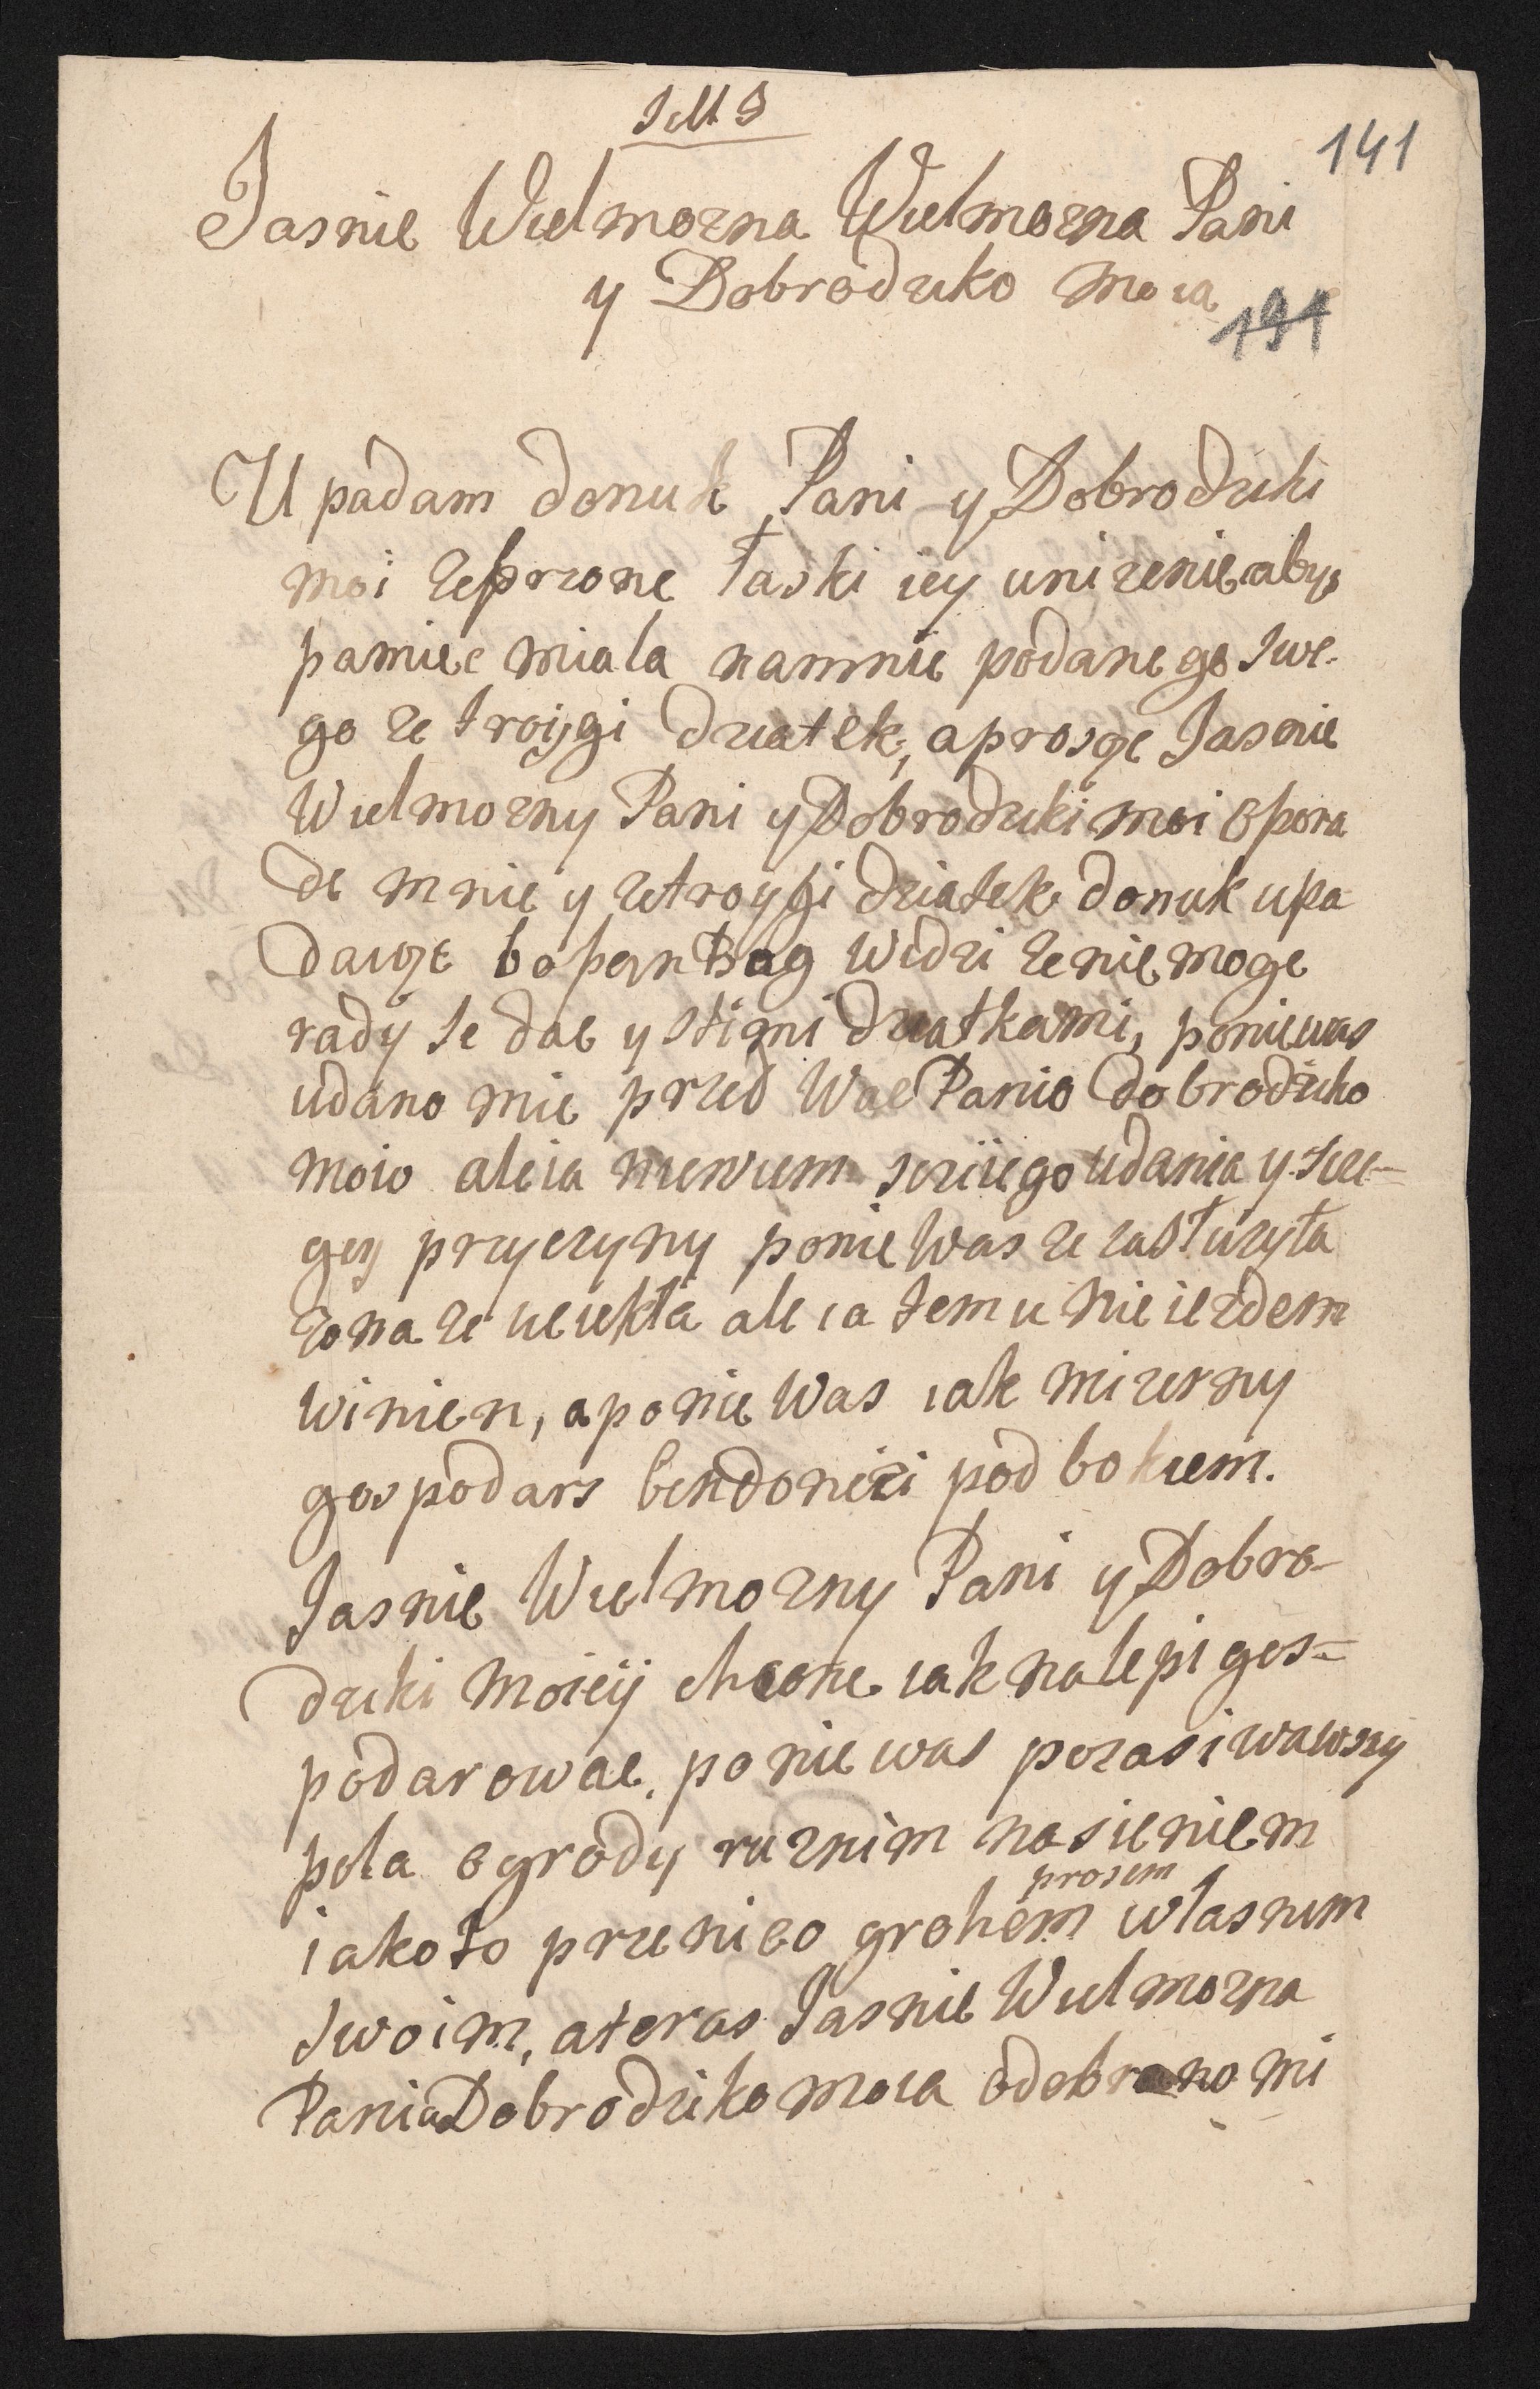 J M J
141
Jasnie Wielmozna Wielmozna Pani
y Dobrodziko moia
191
Upadam donuk Pani y Dobrodziki
moi zeprzone łaski iey unizenie abys
pamiec miala namnie podanego swe-
go ze troijgi dziatek, aprosze Jasnie
Wielmozny Pani y Dobrodziki moi opora
de mnie y zetroygi dziatek donuk upa
daioze bo pan Bog widzi ze nie moge
rady se dac y stimi dziatkami, poniewas
udano mie przed Wac Panio dobrodziko
moio aleia niewiem scziiego udania y scze-
gey przyczyny poniewas ze zasłuzyła
zona ze uciekła ale ia temu nie iezdem
winien, a poniewas iak mizerny
gospodars bendonczi pod bokiem.
Jasnie Wielmozny Pani y Dobro-
dziki moieÿ chcone iak nalepi gos=
podarowac, poniewas pozasiwawszy
pola ogrody ruznim nasieniem
prosem
iakoto przenico grohem własnem
swoim, ateras Jasnie Wielmozna
Pania Dobrodziko moia odebrano mi